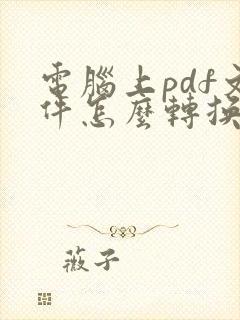 電腦上pdf文
件怎麼轉換
薇子